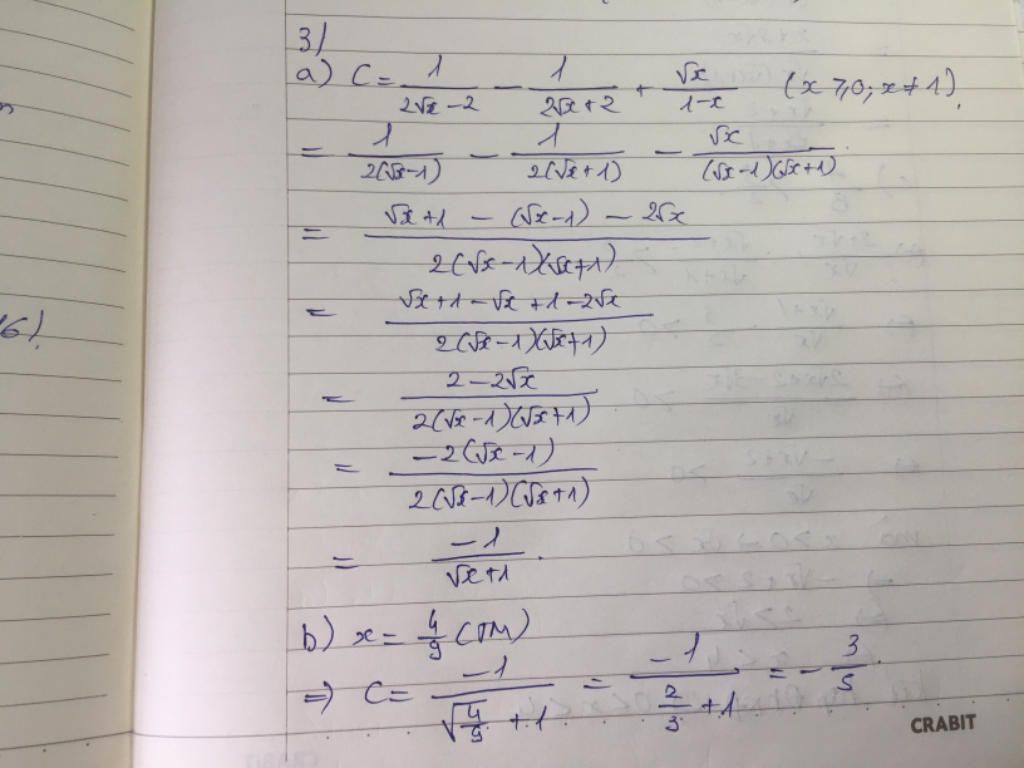 3)
a) C = 1/(2√x - 2) - 1/(2√x + 2) + √x/(1-x) (x ≥ 0; x ≠ 1).
= 1/(2(√x-1)) - 1/(2(√x+1)) - √x/((√x-1)(√x+1)).
= (√x+1 - (√x-1) - 2√x)/(2(√x-1)(√x+1))
= (√x+1-√x+1-2√x)/(2(√x-1)(√x+1))
= (2-2√x)/(2(√x-1)(√x+1))
= (-2(√x-1))/(2(√x-1)(√x+1))
= -1/(√x+1).
b) x = 4/9 (TM)
⇒ C = -1/(√(4/9) + 1) = -1/(2/3 + 1) = -3/5.
16).
CRABIT